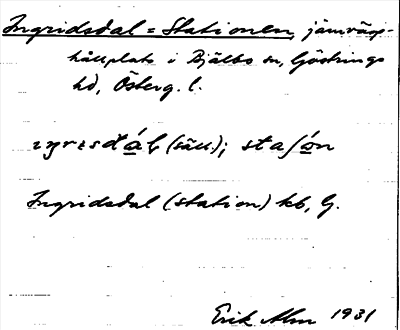 Ingridsdal = Stationen, järnvägs-
hållplats i Bjälbo sn, Göstrings
hd, Österg. l.
(säll.); staʃó̱n
Ingridsdal (station) kb, G.
Erik Alm 1931